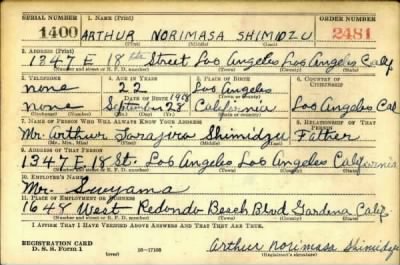 SERIAL NUMBER 1. NAME (Print) ORDER NUMBER
1400 ARTHUR NORIMASA SHIMIDZU 2481
(First) (Middle) (Last)
2. ADDRESS (Print)
1347 E. 18th Street Los Angeles Los Angeles Calif
(Number and street or R. F. D. number) (Town) (County) (State)
3. TELEPHONE 4. AGE IN YEARS 5. PLACE OF BIRTH 6. COUNTRY OF CITIZENSHIP
none 22 Los Angeles
DATE OF BIRTH (Town or county)
none September 28 1918 California Los Angeles Cal
(Exchange) (Number) (Mo.) (Day) (Yr.) (State or country)
7. NAME OF PERSON WHO WILL ALWAYS KNOW YOUR ADDRESS 8. RELATIONSHIP OF THAT PERSON
Mr. Arthur Shimidzu Father
(Mr., Mrs., Miss) (First) (Middle) (Last)
9. ADDRESS OF THAT PERSON
1347 E. 18 St. Los Angeles Los Angeles California
(Number and street or R. F. D. number) (Town) (County) (State)
10. EMPLOYER'S NAME
Mr. Suyama
11. PLACE OF EMPLOYMENT OR BUSINESS
1648 West Redondo Beach Blvd Gardena Calif
(Number and street or R. F. D. number) (Town) (County) (State)
I AFFIRM THAT I HAVE VERIFIED ABOVE ANSWERS AND THAT THEY ARE TRUE.
REGISTRATION CARD
D. S. S. Form 1 16-17105 Arthur Norimasa Shimidzu
(Registrant's signature)